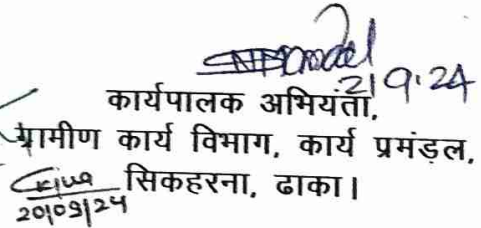 21.9.24
कार्यपालक अभियंता,
ग्रामीण कार्य विभाग, कार्य प्रमंडल,
सिकहरना, ढाका।
20/09/24